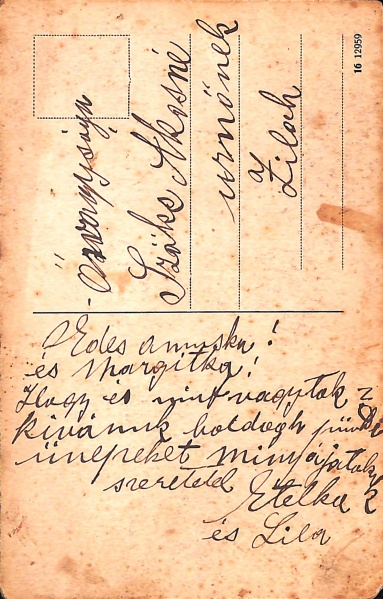 Őnagysága
Szőke Ákosné
urnőnek
Zilah
16 12959
Édes annuska!
és Margitka!
Hogy és mint vagytok
kivánuk boldogh
ünepeket
szeretetel Etelka
és Lila